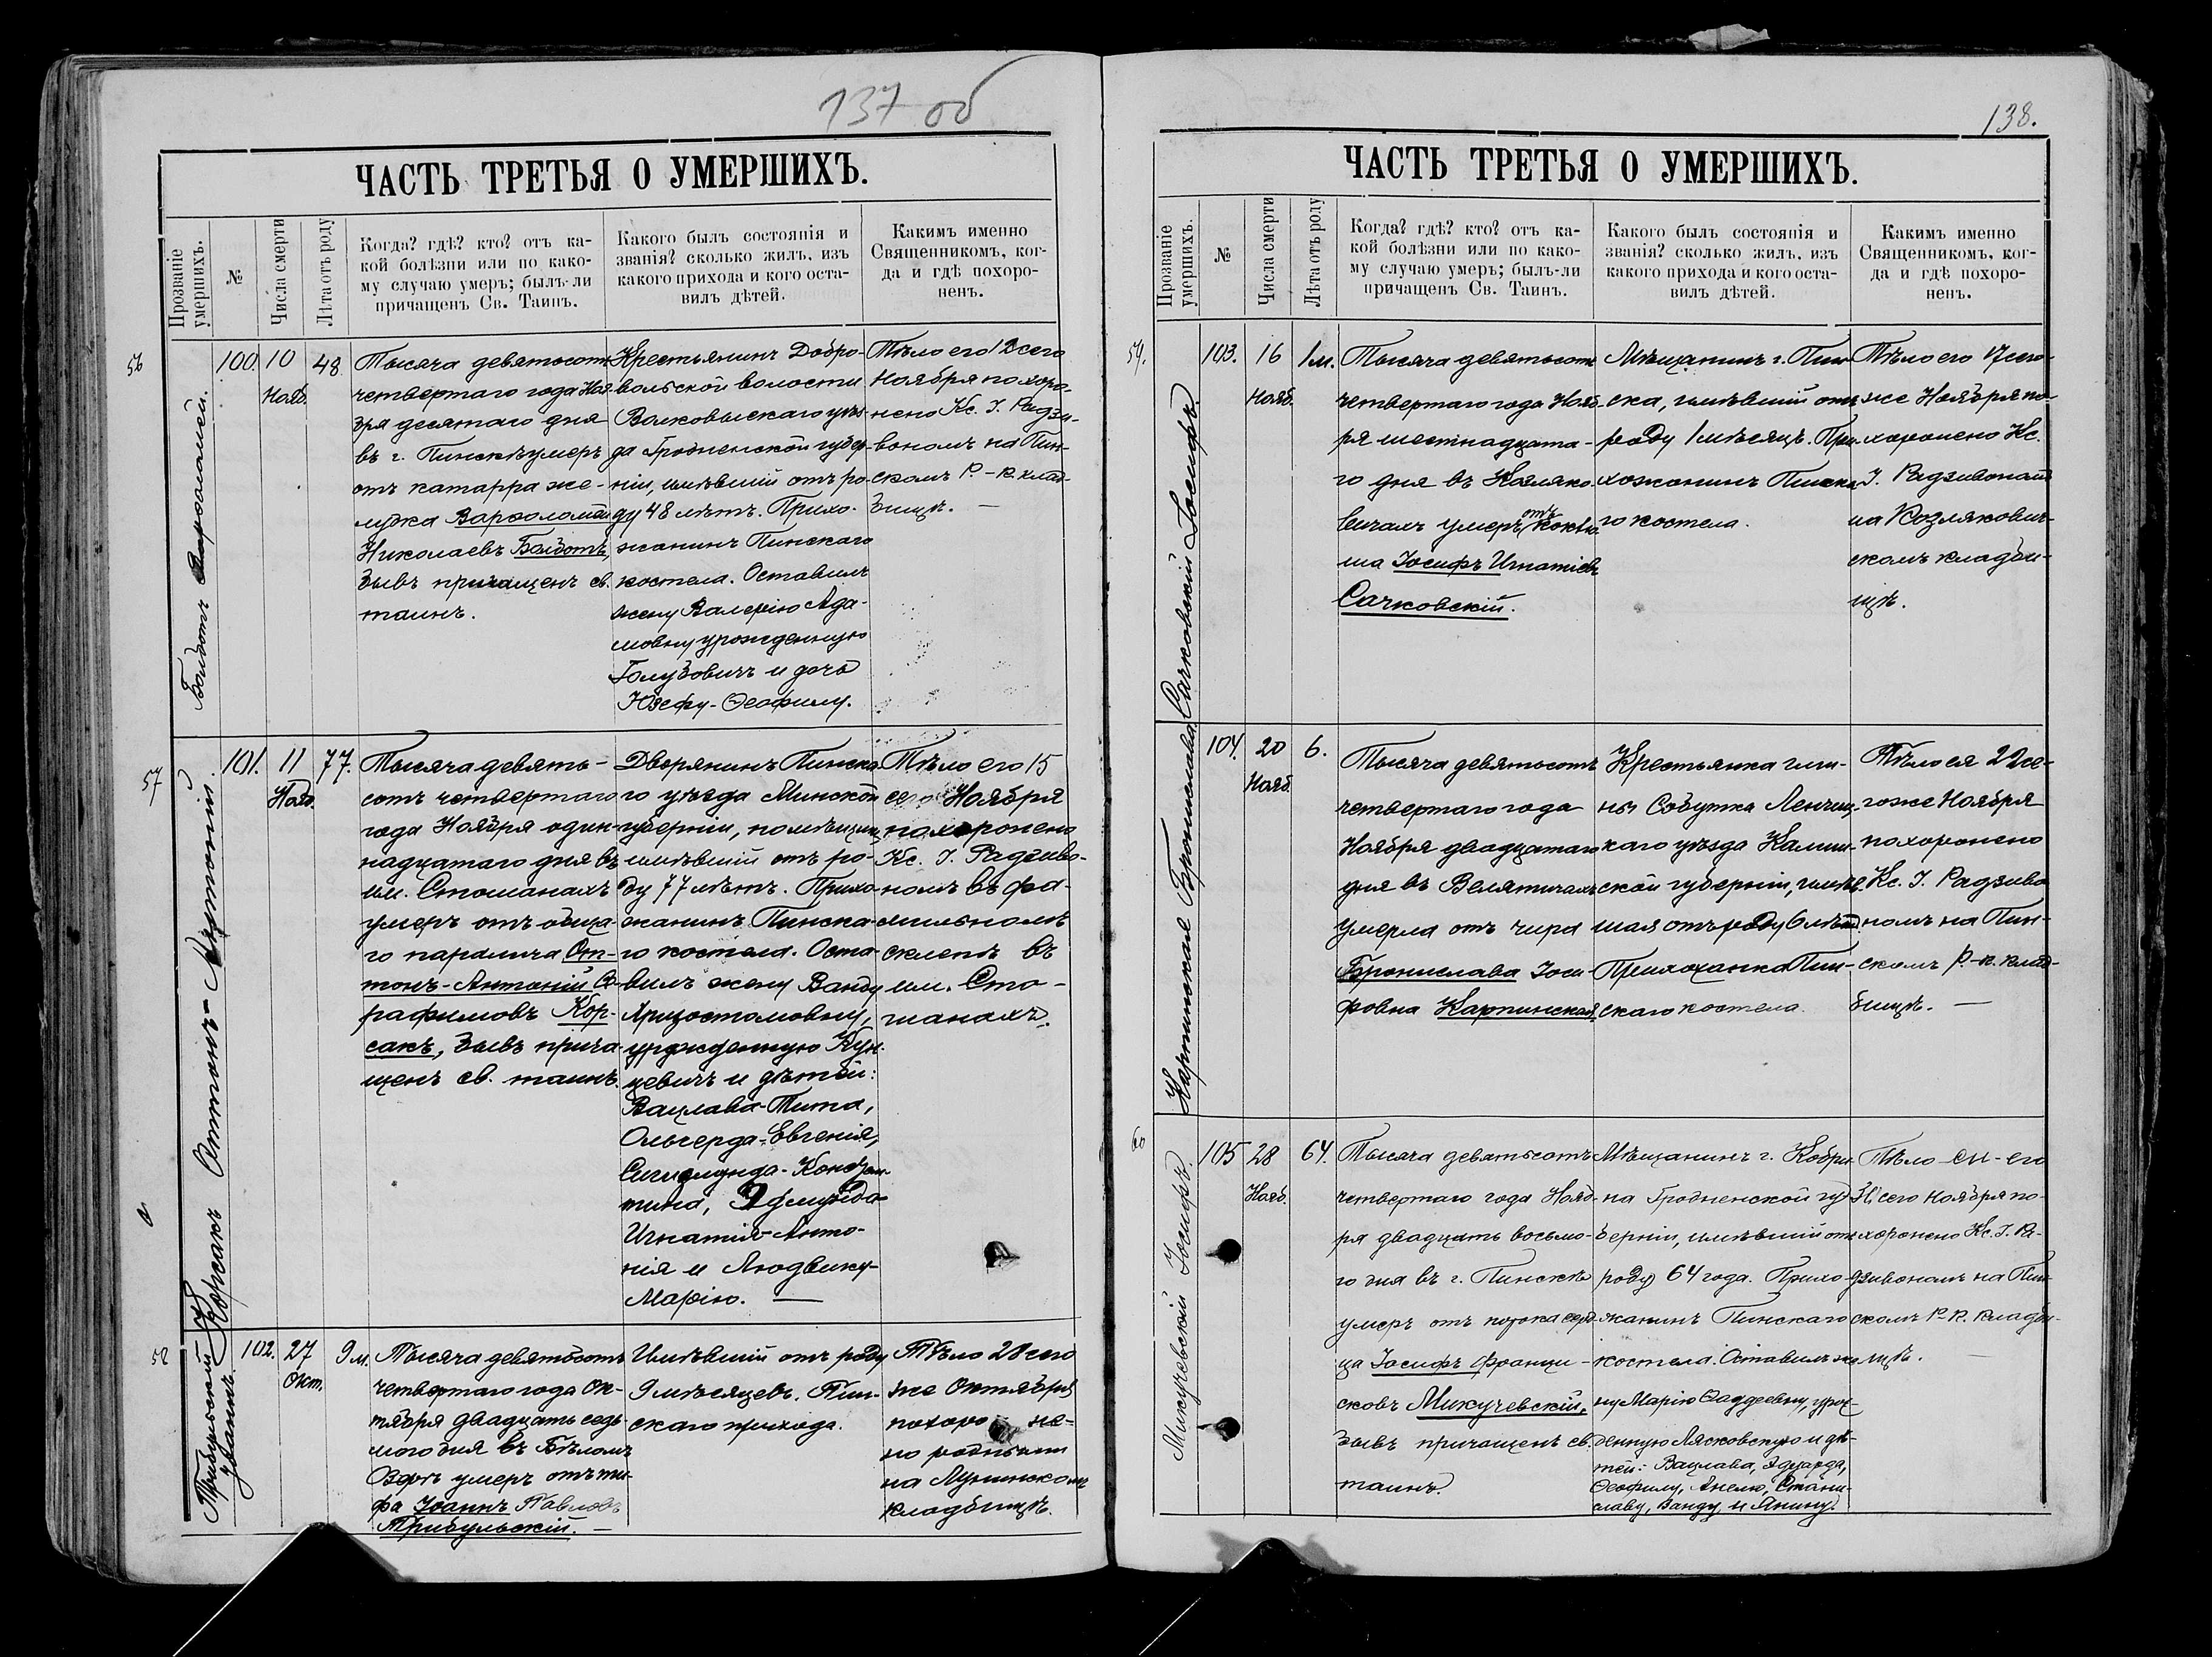 137 об
ЧАСТЬ ТРЕТЬЯ О УМЕРШИХЪ.
Прозваніе умершихъ.
№
Числа смерти
Лѣта отъ роду
Когда? гдѣ? кто? отъ ка-
кой болѣзни или по како-
му случаю умеръ; былъ-ли
причащенъ Св. Таинъ.
Какого былъ состоянія и
званія? сколько жилъ, изъ
какого прихода и кого оста-
вилъ дѣтей.
Какимъ именно
Священникомъ, ког-
да и гдѣ похоро-
ненъ.
56
Болботъ Варѳоломей.
100.
10
Нояб.
48
Тысяча девятьсотъ
четвертаго года Ноя-
бря десятаго дня
въ г. Пинскѣ умеръ
отъ катарра же-
лудка Варѳоломей
Николаевъ Болботъ,
бывъ причащенъ св.
таинъ.
Крестьянинъ Добро-
вольской волости
Волковыскаго уѣз-
да Гродненской губер-
ніи, имѣвшій отъ ро-
ду 48 лѣтъ. Прихо-
жанинъ Пинскаго
костела. Оставилъ
жену Валерію Ада-
мовну урожденную
Голубовичъ и дочь
Юзефу-Ѳеофилу.
Тѣло его 12 сего
Ноября похоро-
нено Кс. І. Радзи-
вономъ на Пин-
скомъ Р.-к. клад-
бищѣ. —
57
Корсакъ Оттонъ-Антоній
101.
11
Нояб.
77.
Тысяча девять-
сотъ четвертаго
года Ноября один-
надцатаго дня въ
им. Стошанахъ
умеръ отъ обща-
го паралича От-
тонъ-Антоній Се-
рафимовъ Кор-
сакъ, бывъ прича-
щенъ св. таинъ.
Дворянинъ Пинска-
го уѣзда Минской
губерніи, помѣщикъ,
имѣвшій отъ ро-
ду 77 лѣтъ. Прихо-
жанинъ Пинска-
го костела. Оста-
вилъ жену Ванду
Хризостомовну,
урожденную Кун-
цевичъ и дѣтей:
Вацлава-Тита,
Ольгерда-Евгенія,
Сигизмунда-Констан-
тина, Эдмунда-
Игнатія-Анто-
нія и Людвику-
Марію. —
Тѣло его 15
сего Ноября
похоронено
Кс. І. Радзиво-
номъ въ фа-
мильномъ
склепѣ въ
им. Сто-
шанахъ.
58
Трибульскій Іоаннъ.
102.
27
Окт.
9 м.
Тысяча девятьсотъ
четвертаго года Ок-
тября двадцать седь-
мого дня въ Бѣломъ
Озерѣ умеръ отъ ти-
фа Іоаннъ Павловъ
Трибульскій. —
Имѣвшій отъ роду
9 мѣсяцевъ. Пин-
скаго прихода.
Тѣло 28 сего
же Октября
похороне-
но родными
на Лунинскомъ
кладбищѣ.
138.
ЧАСТЬ ТРЕТЬЯ О УМЕРШИХЪ.
Прозваніе умершихъ.
№
Числа смерти
Лѣта отъ роду
Когда? гдѣ? кто? отъ ка-
кой болѣзни или по како-
му случаю умеръ; былъ-ли
причащенъ Св. Таинъ.
Какого былъ состоянія и
званія? сколько жилъ, изъ
какого прихода и кого оста-
вилъ дѣтей.
Какимъ именно
Священникомъ, ког-
да и гдѣ похоро-
ненъ.
59.
Сачковскій Іосифъ.
103.
16
Нояб.
1 м.
Тысяча девятьсотъ
четвертаго года Нояб-
ря шестнадцата-
го дня въ Козляко-
вичахъ умеръ отъ коклю-
ша Іосифъ Игнатіевъ
Сачковскій.
Мѣщанинъ г. Пин-
ска, имѣвшій отъ
роду 1 мѣсяцъ. При-
хожанинъ Пинска-
го костела.
Тѣло его 17 сего-
же Ноября по-
хоронено Кс.
І. Радзивономъ
на Козлякович-
скомъ кладби-
щѣ.
Карпинская Бронислава.
104.
20
Нояб.
6.
Тысяча девятьсотъ
четвертаго года
Ноября двадцатаго
дня въ Велятичахъ
умерла отъ чира
Бронислава Іоси-
фовна Карпинская.
Крестьянка гми-
ны Собутка Ленчиц-
каго уѣзда Калиш-
ской губерніи, имѣв-
шая отъ роду 6 лѣтъ.
Прихожанка Пин-
скаго костела.
Тѣло ея 22 се-
гоже Ноября
похоронено
Кс. І. Радзиво-
номъ на Пин-
скомъ Р.-к. клад-
бищѣ. —
60
Микучевскій Іосифъ.
105
28
Нояб.
64.
Тысяча девятьсотъ
четвертаго года Нояб-
ря двадцать восьмо-
го дня въ г. Пинскѣ
умеръ отъ порока серд-
ца Іосифъ Франци-
сковъ Микучевскій,
бывъ причащенъ св.
таинъ.
Мѣщанинъ г. Кобри-
на Гродненской гу-
берніи, имѣвшій отъ
роду 64 года. Прихо-
жанинъ Пинскаго
костела. Оставилъ же-
ну Марію Ѳаддеевну, урож-
денную Лясковскую и дѣ-
тей: Вацлава, Эдуарда,
Ѳеофилу, Анелю, Стани-
славу, Ванду и Янину.
Тѣло его
сего Ноября по-
хоронено Кс. І. Ра-
дзивономъ на Пин-
скомъ Р.-К. кладби-
щѣ. —